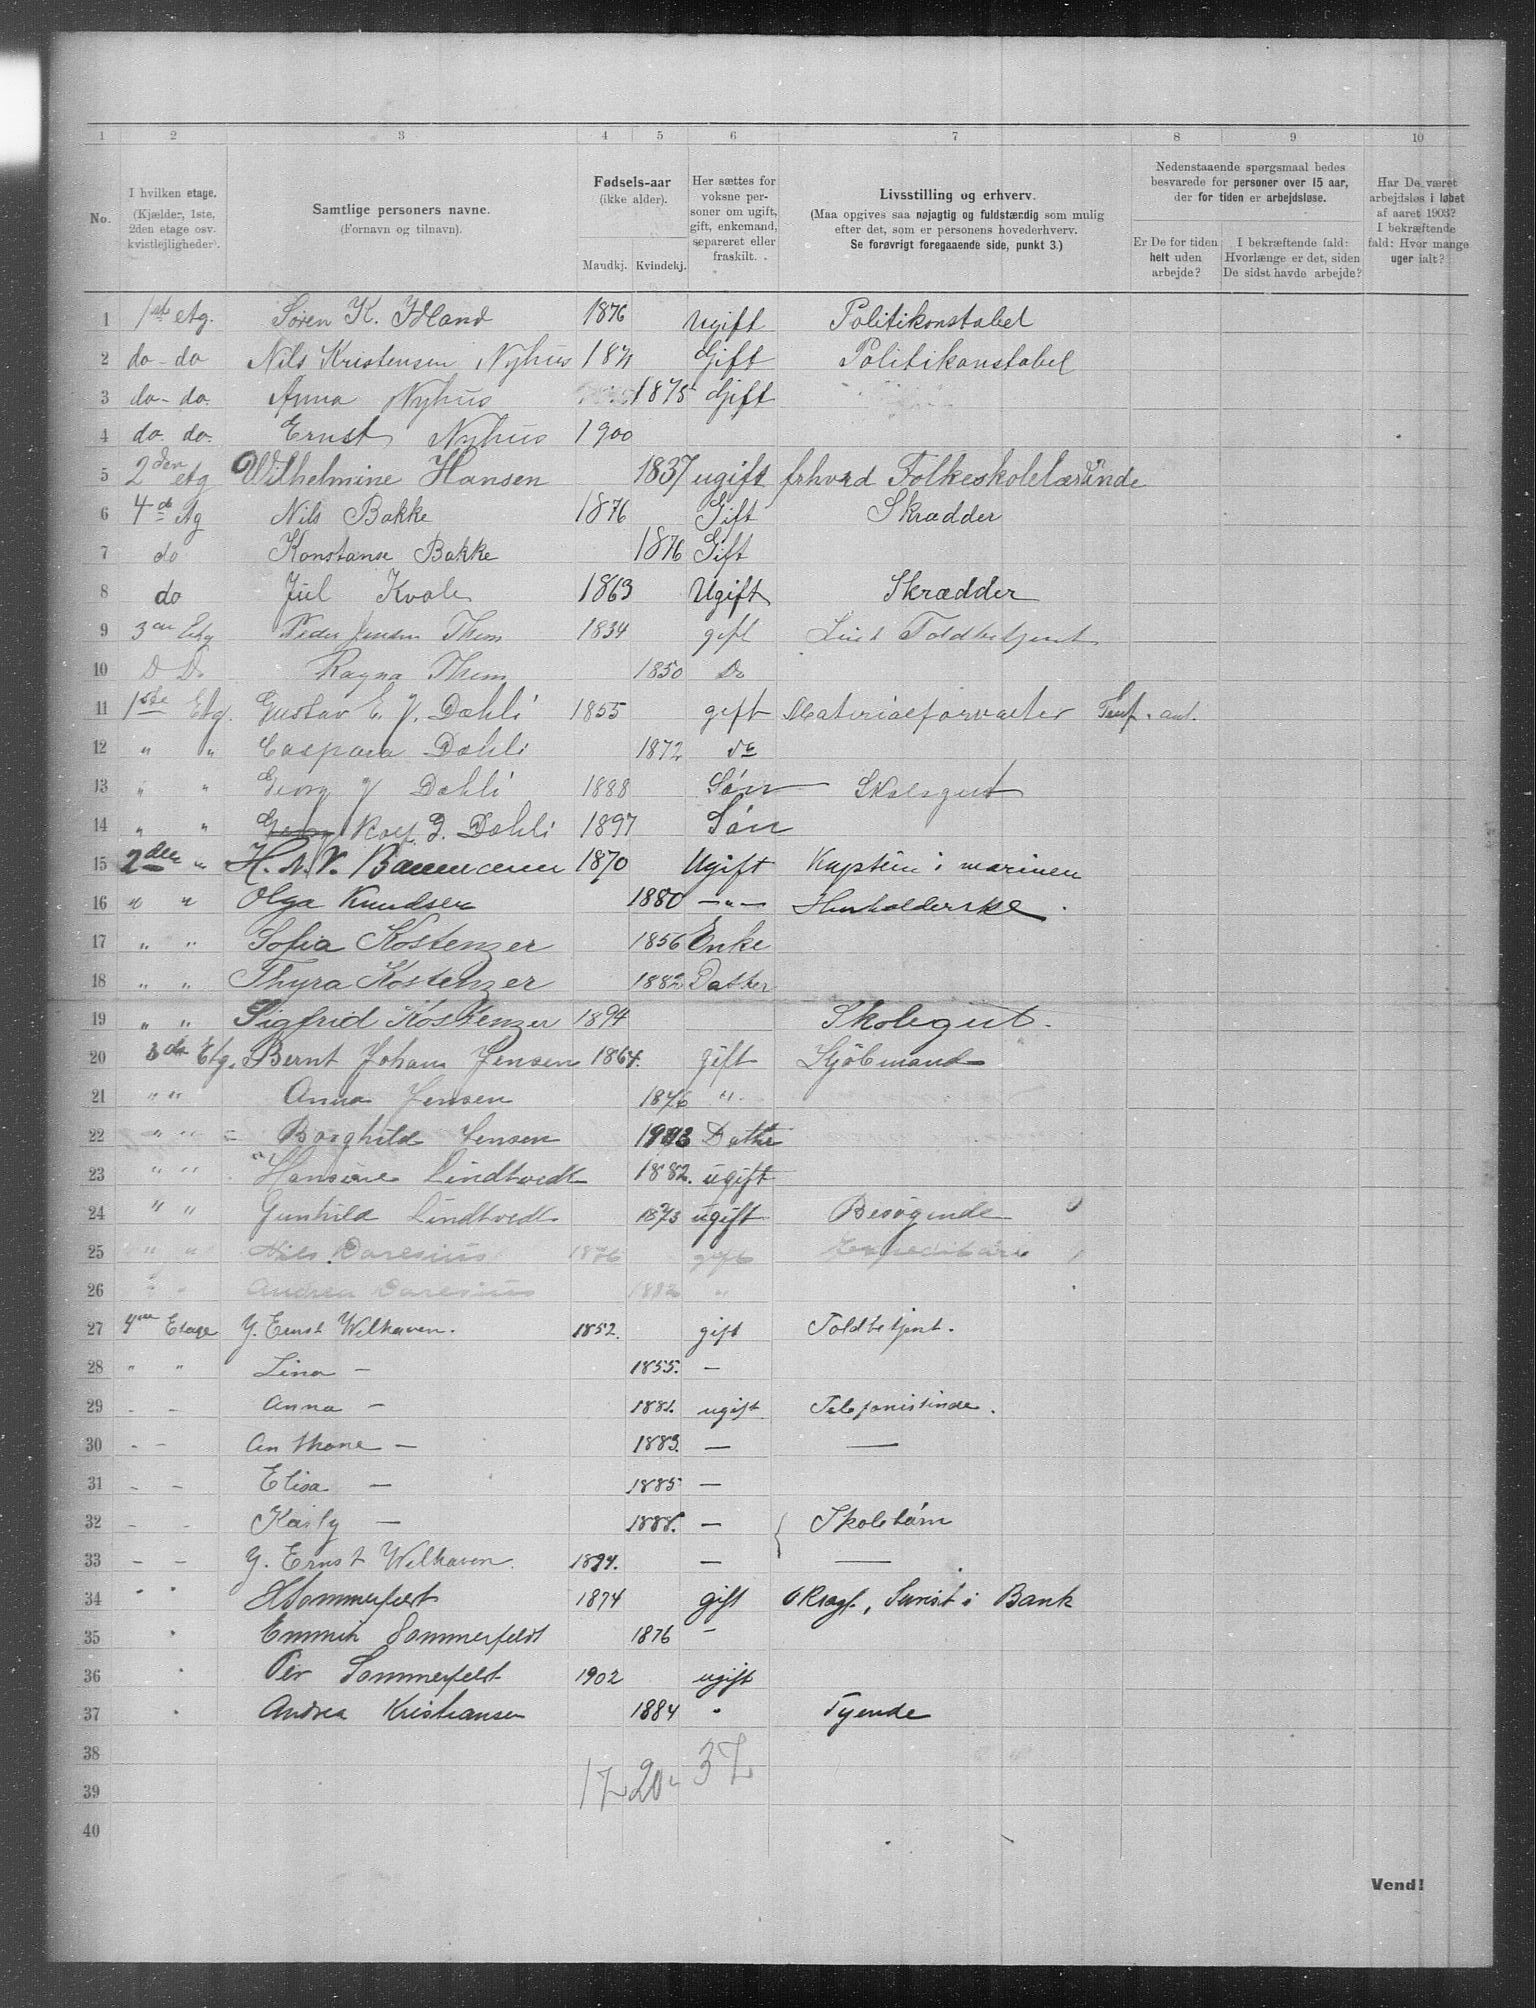 1 2 3 4 5 6 7 8 9 10
No. I hvilken etage. (Kjælder, 1ste, 2den etage osv. kvistlejligheder). Samtlige personers navne. (Fornavn og tilnavn). Fødsels-aar (ikke alder). Mandkj. Kvindekj. Her sættes for voksne personer om ugift, gift, enkemand, separeret eller fraskilt. Livsstilling og erhverv. (Maa opgives saa nøjagtig og fuldstændig som mulig efter det, som er personens hovederhverv. Se forøvrigt foregaaende side, punkt 3.) Nedenstaaende spørgsmaal bedes besvarede for personer over 15 aar, der for tiden er arbejdsløse. Er De for tiden helt uden arbejde? I bekræftende fald: Hvorlænge er det, siden De sidst havde arbejde? Har De været arbejdsløs i løbet af aaret 1903? I bekræftende fald: Hvor mange uger ialt?
1 1ste etg. Søren K. Ydland 1876 Ugift Politikonstabel
2 do - do Nils Kristensen Nyhus 1871 Gift Politikonstabel
3 do - do. Anna Nyhus 1875 Gift
4 do. do. Ernst Nyhus 1900
5 2den etg Wilhelmine Hansen 1837 ugift frhvrd Folkeskolelærinde
6 4de Etg Nils Bakke 1876 Gift Skrædder
7 do Konstanse Bakke 1876 Gift
8 do Jul Kvale 1863 Ugift Skrædder
9 3die Etg Peder Jensen Them 1834 gift Toldbetjent
10 D Do Ragna Them 1850 Do
11 1ste Etg. Gustav E. J. Dahli 1855 gift Materialforvalter
12 " " Caspara Dahli 1872 do
13 " " Georg J Dahli 1888 Søn Skolegut
14 " " Georg Rolf G. Dahli 1897 Søn
15 2den " H. A. V. 1870 Ugift Kaptein i marinen
16 " " Olga Knudsen 1880 —"— Husholderske.
17 " " Sofia Kostenzer 1856 Enke
18 " " Thyra Kostenzer 1882 Datter
19 " " Sigfrid Kostenzer 1894 Skolegut.
20 3die Etg. Bernt Johan Jensen 1864. gift
21 " " Anna Jensen 1876 "
22 " " Borghild Jensen 1903 Datter
23 " " Hansine Lindtvedt 1882. ugift
24 " " Gunhild Lindtvedt 1873 ugift Besøgende
25 " " Nils Daresius 1876 gift
26 " " Andrea Daresius 1882 "
27 4de Etage J. Ernst Welhaven. 1852. gift Toldbetjent.
28 " " Lina — 1855. —
29 - - Anna — 1881. ugift Telefonistinde.
30 - - — 1883. — —
31 - - Elisa — 1885 —
32 - - Kasly — 1888. — { Skolebørn
33 - - J. Ernst Welhaven. 1894. — —
34 " " Sommerfeldt 1874 gift Jurist i Bank
35 " Sommerfeldt 1876 —
36 " Per Sommerfeldt 1902 ugift
37 " Andrea Kristiansen 1884 " Tyende
38
39 17 20 37
40
Vend!